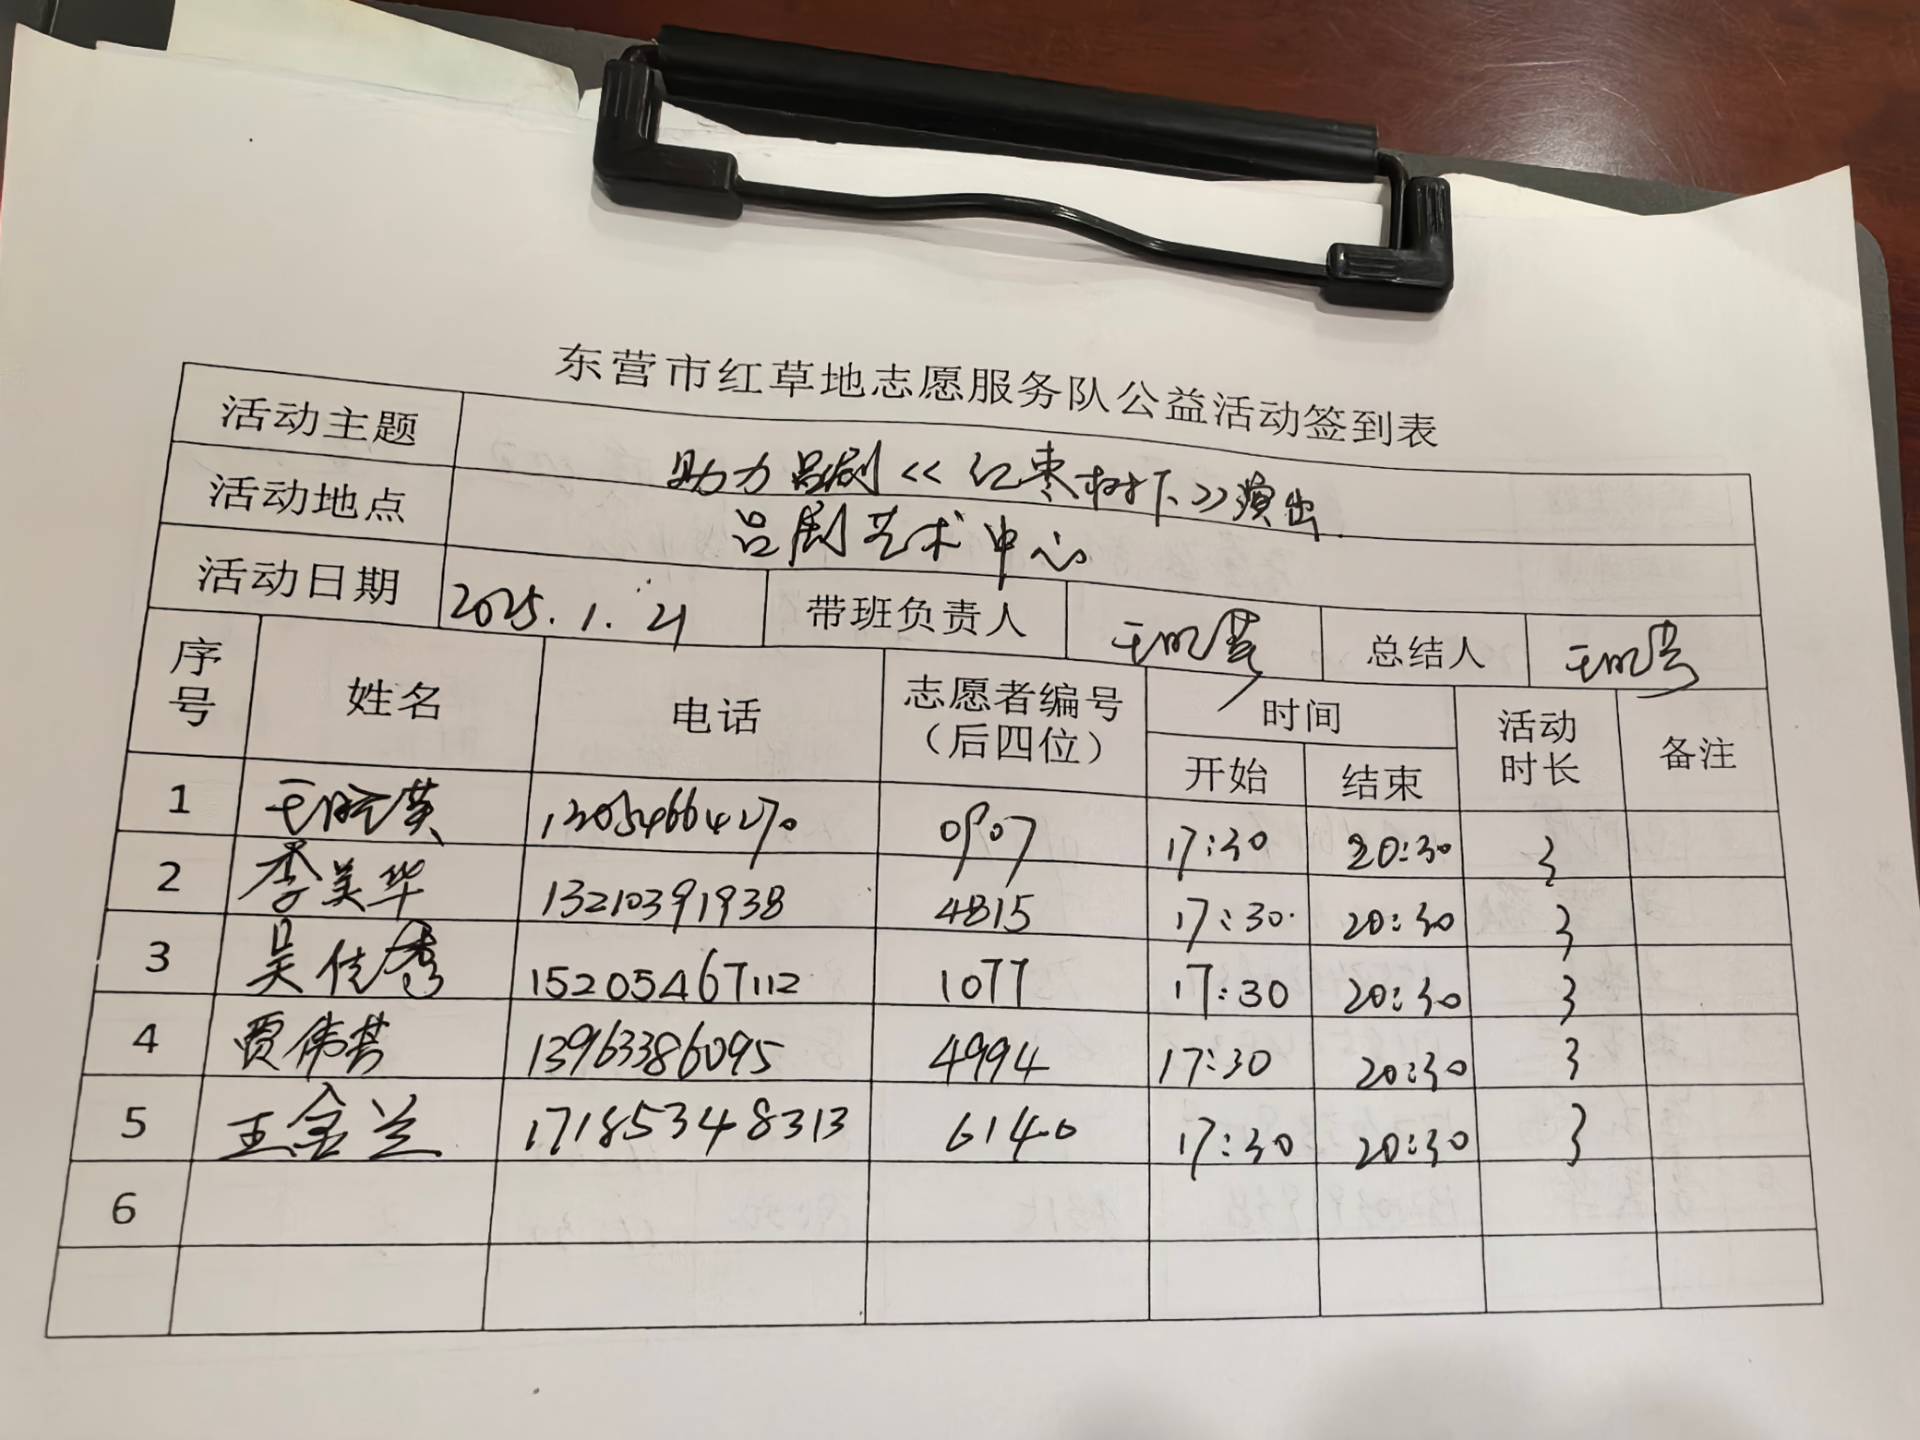 东营市红草地志愿服务队公益活动签到表
活动主题 助力吕剧《红枣树下》演出
活动地点 吕剧艺术中心
活动日期 2025.1.21 带班负责人 总结人
序号 姓名 电话 志愿者编号（后四位） 时间 活动时长 备注
开始 结束
1 13054664270 0907 17:30 20:30 3
2 李美华 13210391938 4815 17:30 20:30 3
3 吴佳秀 15205467112 1077 17:30 20:30 3
4 贾伟芳 13963386095 4994 17:30 20:30 3
5 王金兰 17185348313 6140 17:30 20:30 3
6